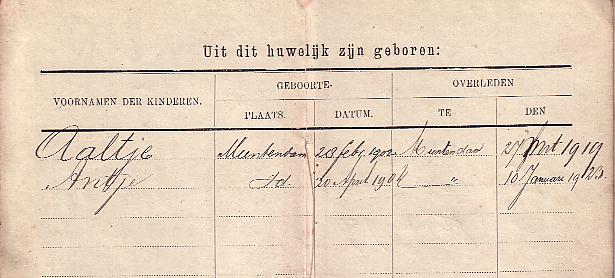 Uit dit huwelijk zijn geboren:
VOORNAMEN DER KINDEREN. GEBOORTE- OVERLEDEN
PLAATS. DATUM. TE DEN
Aaltje Muntendam 28 feby. 1902 Muntendam 27 Mrt 1919
Antje Id 20 April 1904 " 10 Januari 1923